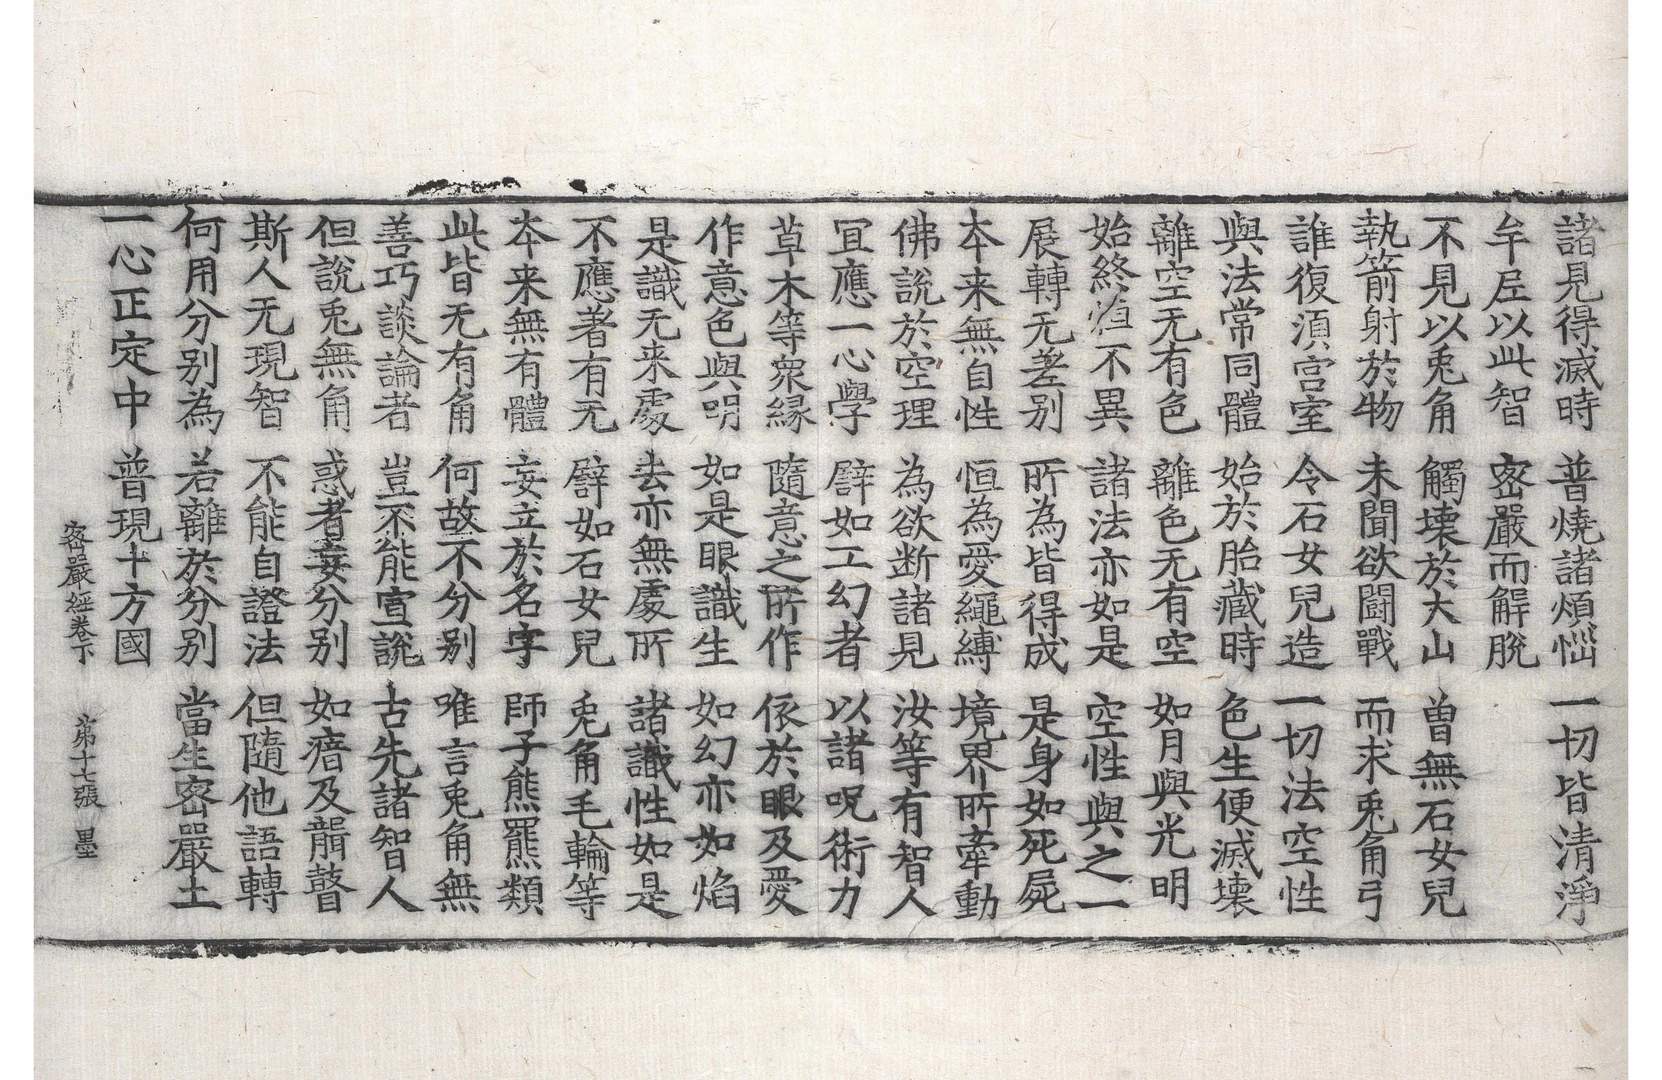 諸見得滅時 普燒諸煩惱 一切皆清淨
牟㞐以此智 密嚴而解脫
不見以兎角 觸壞於大山 曽無石女兒
執箭射於物 未聞欲鬪戰 而求兎角弓
誰復湏宫室 令石女兒造 一切法空性
與法常同體 始於胎藏時 色生便滅壞
離空无有色 離色无有空 如月與光明
始終恒不異 諸法亦如是 空性與之一
展轉无差别 所為皆得成 是身如死屍
本来無自性 恒為愛繩縛 境界所牽動
佛說於空理 為欲断諸見 汝等有智人
冝應一心學 譬如工幻者 以諸呪術力
草木等衆縁 隨意之所作 依於眼及愛
作意色與明 如是眼識生 如幻亦如焰
是識无来處 去亦無處所 諸識性如是
不應著有无 譬如石女兒 兎角毛輪等
本来無有體 妄立於名字 師子熊羆類
此皆无有角 何故不分别 唯言兎角無
善巧談論者 豈不能宣說 古先諸智人
但說兎無角 惑者妄分别 如瘖及聾瞽
斯人无現智 不能自證法 但隨他語轉
何用分别為 若離於分别 當生密嚴土
一心正定中 普現十方國
密嚴經卷下 第十七張 墨